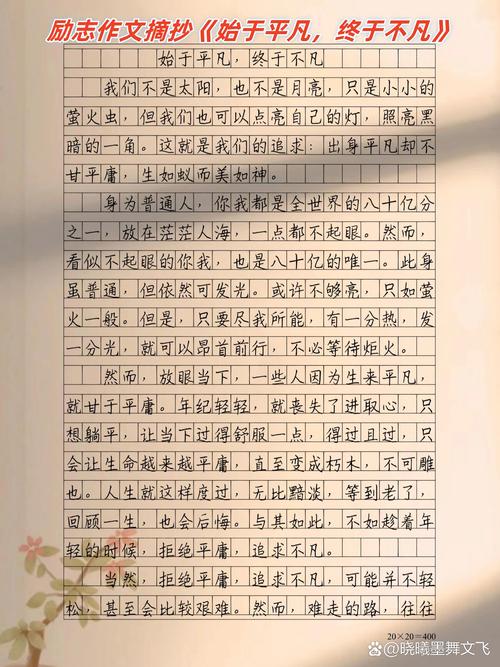 励志作文摘抄《始于平凡，终于不凡》
始于平凡，终于不凡
我们不是太阳，也不是月亮，只是小小的
萤火虫，但我们也可以点亮自己的灯，照亮黑
暗的一角。这就是我们的追求：出身平凡却不
甘平庸，生如蚁而美如神。
身为普通人，你我都是全世界的八十亿分
之一，放在茫茫人海，一点都不起眼。然而，
看似不起眼的你我，也是八十亿的唯一。此身
虽普通，但依然可发光。或许不够亮，只如萤
火一般。但是，只要尽我所能，有一分热，发
一分光，就可以昂首前行，不必等待炬火。
然而，放眼当下，一些人因为生来平凡，
就甘于平庸。年纪轻轻，就丧失了进取心，只
想躺平，让当下过得舒服一点，得过且过，只
会让生命越来越平庸，直至变成朽木，不可雕
也。人生就这样度过，无比黯淡，等到老了，
回顾一生，也会后悔。与其如此，不如趁着年
轻的时候，拒绝平庸，追求不凡。
当然，拒绝平庸，追求不凡，可能并不轻
松，甚至会比较艰难。然而，难走的路，往往
20×20=400
晓曦墨舞文飞